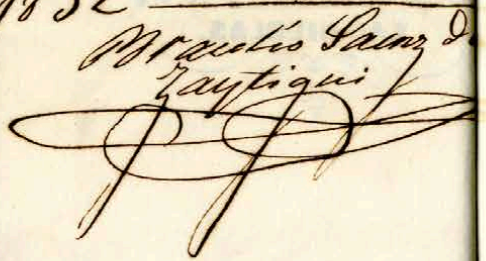 1852
Braulio Saenz de
Zaytigui